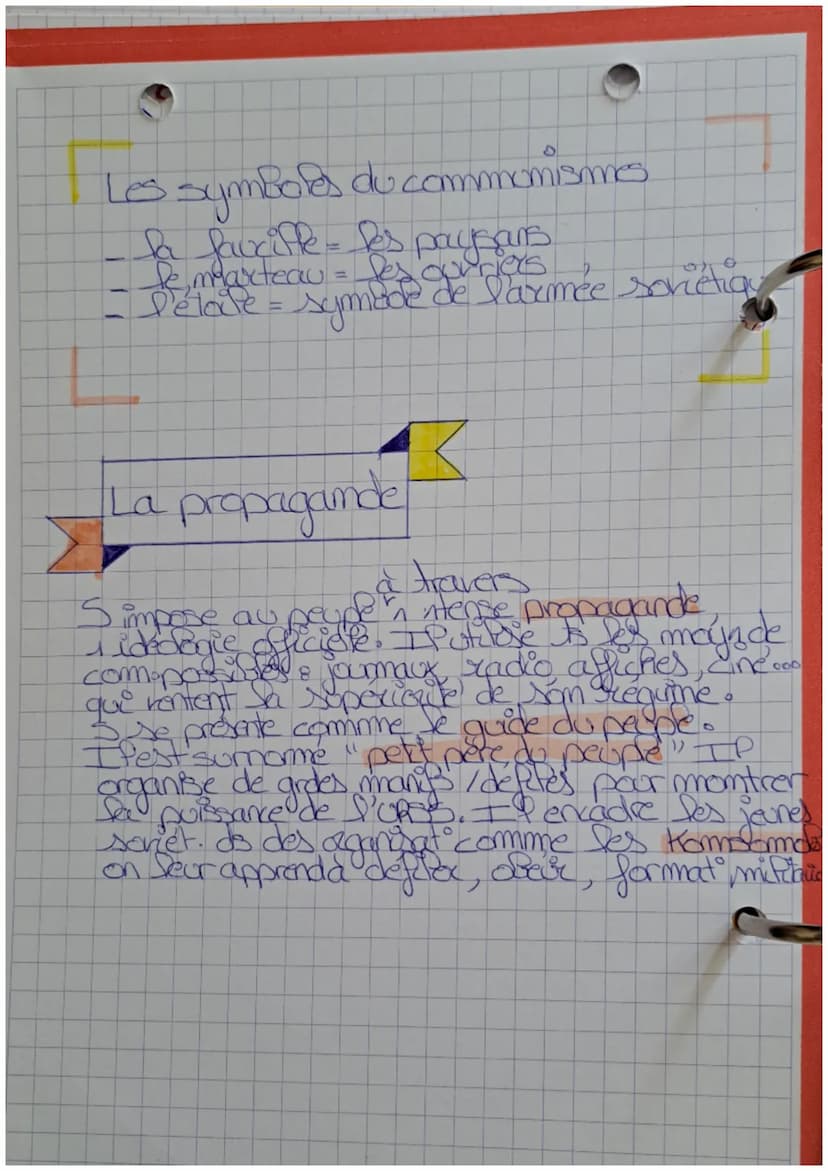 Les symboles du communismes
- la faucille = les paysans
- le marteau = les ouvriers
- l'étoile = symbole de l'armée soviétiq
La propagande
à travers
S impose au peuple n ntense propagande,
idéologie officielle. Il utilise ts les moy de
com possibles : journaux, radio affiches, ciné...
qui ventent la supériorité de son régime.
S se présente comme le guide du peuple.
Il est surnomé "petit père du peuple" Il
organise de grdes manifs / défilés pour montrer
la puissance de l'URSS. Il encadre les jeunes
soviét. ds des organisat° comme les Komsomols
on leur apprend à défiler, obéir, format° militair